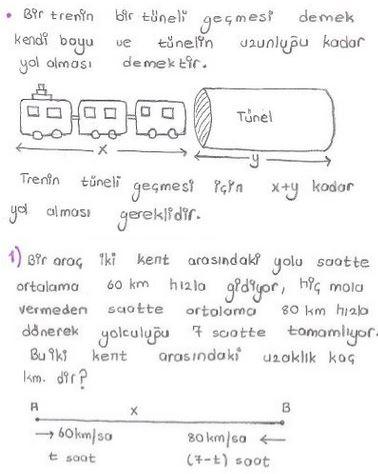 • Bir trenin bir tüneli geçmesi demek
kendi boyu ve tünelin uzunluğu kadar
yol alması demektir.
Tünel
x
y
Trenin tüneli geçmesi için x+y kadar
yol alması gereklidir.
1) Bir araç iki kent arasındaki yolu saatte
ortalama 60 km hızla gidiyor, hiç mola
vermeden saatte ortalama 80 km hızla
dönerek yolculuğu 7 saatte tamamlıyor.
Bu iki kent arasındaki uzaklık kaç
km. dir?
A x B
→ 60km/sa 80km/sa ←
t saat (7-t) saat